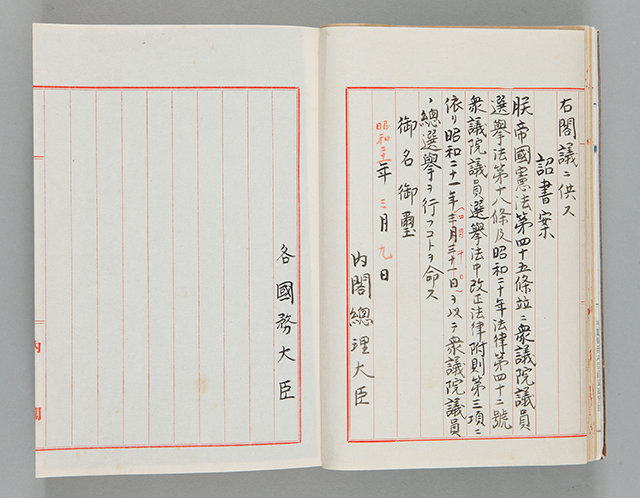 右閣議ニ供ス
詔書案
朕帝國憲法第四十五條竝ニ衆議院議員
選擧法第十八條及昭和二十年法律第四十二號
衆議院議員選擧法中改正法律附則第三項ニ
依リ昭和二十一年三月三十一日ヲ以テ衆議院議員
四月十日
ノ總選擧ヲ行フコトヲ命ス
御名御璽
昭和二十一年三月九日
内閣總理大臣
各國務大臣
内閣